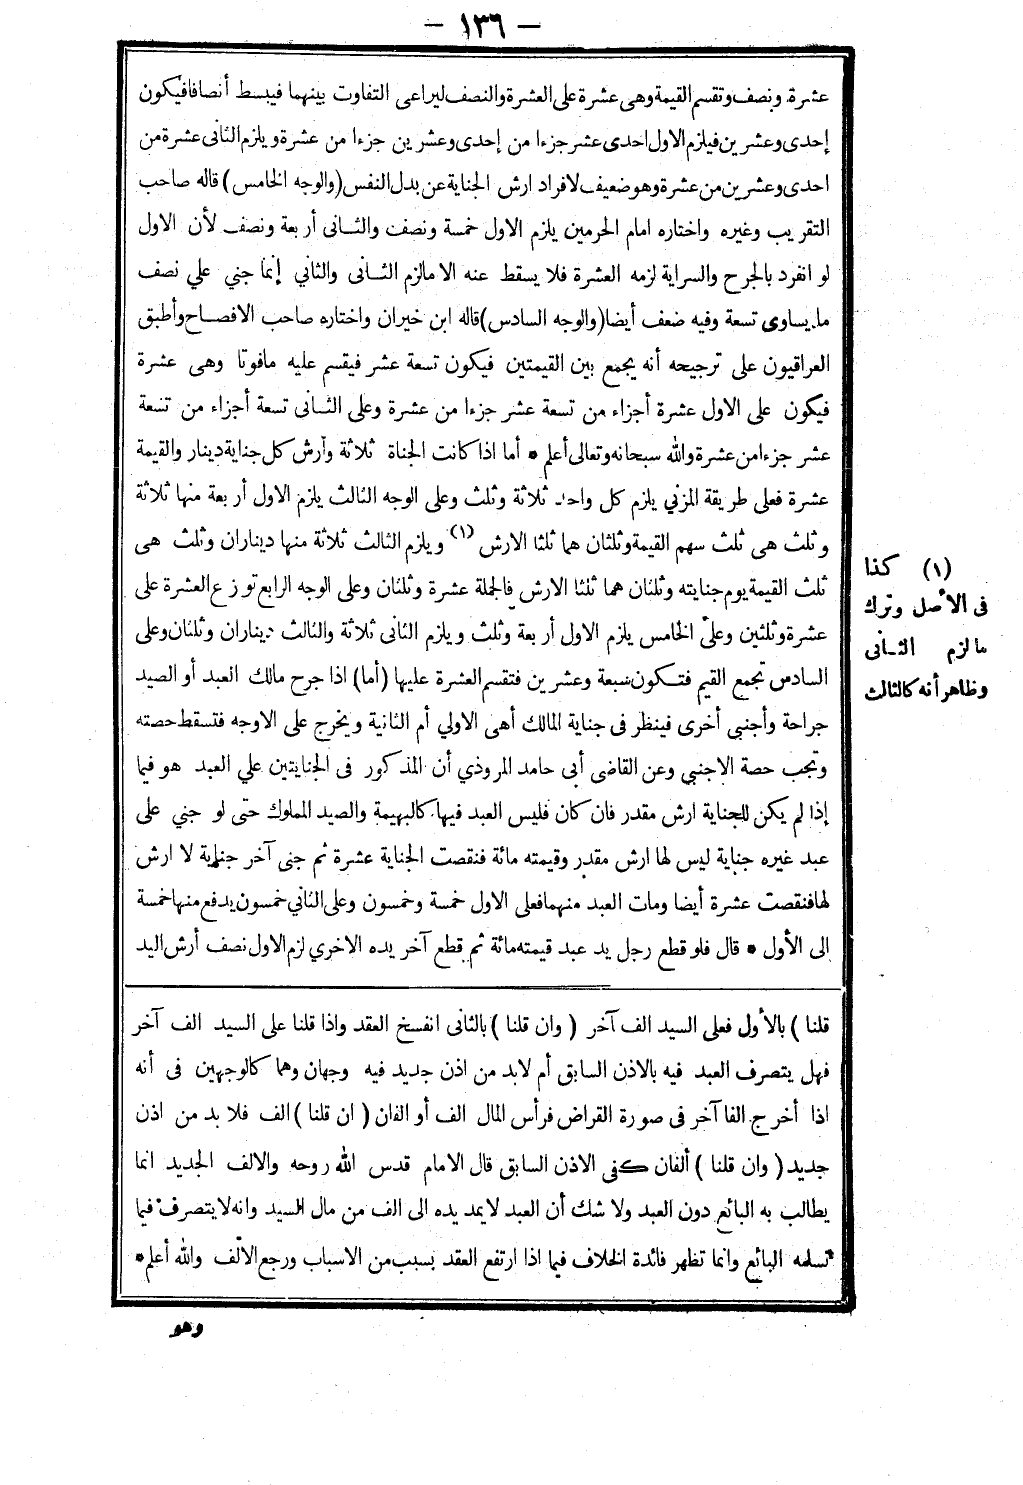 — ١٣٦ —
عشرة ونصف وتقسم القيمة وهى عشرة على العشرة والنصف ليراعى التفاوت بينهما فيبسط أنصافا فيكون
إحدى وعشرين فيلزم الاول احدى عشر جزءا من إحدى وعشرين جزءا من عشرة ويلزم الثانى عشرة من
احدى وعشرين من عشرة وهو ضعيف لافراد ارش الجناية عن بدل النفس (والوجه الخامس) قاله صاحب
التقريب وغيره واختاره امام الحرمين يلزم الاول خمسة ونصف والثانى أربعة ونصف لأن الاول
لو انفرد بالجرح والسراية لزمه العشرة فلا يسقط عنه الا مالزم الثانى والثاني إنما جني علي نصف
ما يساوى تسعة وفيه ضعف أيضا (والوجه السادس) قاله ابن خيران واختاره صاحب الافصاح وأطبق
العراقيون على ترجيحه أنه يجمع بين القيمتين فيكون تسعة عشر فيقسم عليه مافوتا وهى عشرة
فيكون على الاول عشرة أجزاء من تسعة عشر جزءا من عشرة وعلى الثانى تسعة أجزاء من تسعة
عشر جزءا من عشرة والله سبحانه وتعالى أعلم * أما اذا كانت الجناة ثلاثة وأرش كل جناية دينار والقيمة
عشرة فعلى طريقة المزني يلزم كل واحد ثلاثة وثلث وعلى الوجه الثالث يلزم الاول أربعة منها ثلاثة
وثلث هى ثلث سهم القيمة وثلثان هما ثلثا الارش (١) ويلزم الثالث ثلاثة منها ديناران وثلث هى
ثلث القيمة يوم جنايته وثلثان هما ثلثا الارش فالجملة عشرة وثلثان وعلى الوجه الرابع توزع العشرة على
عشرة وثلثين وعلى الخامس يلزم الاول أربعة وثلث ويلزم الثانى ثلاثة والثالث ديناران وثلثان وعلى
السادس تجمع القيم فتكون سبعة وعشرين فتقسم العشرة عليها (أما) اذا جرح مالك العبد أو الصيد
جراحة وأجنبي أخرى فينظر فى جناية المالك أهى الاولي أم الثانية ويخرج على الاوجه فتسقط حصته
وتجب حصة الاجنبي وعن القاضى أبى حامد المروذي أن المذكور فى الجنايتين علي العبد هو فيما
إذا لم يكن للجناية ارش مقدر فان كان فليس العبد فيها كالبهيمة والصيد المملوك حتى لو جني على
عبد غيره جناية ليس لها ارش مقدر وقيمته مائة فنقصت الجناية عشرة ثم جنى آخر جناية لا ارش
لها فنقصت عشرة أيضا ومات العبد منهما فعلى الاول خمسة وخمسون وعلى الثاني خمسون يدفع منها خمسة
الى الأول * قال فلو قطع رجل يد عبد قيمته مائة ثم قطع آخر يده الاخري لزم الاول نصف أرش اليد
(١) كذا
فى الأصل وترك
مالزم الثانى
وظاهر أنه كالثالث
قلنا) بالأول فعلى السيد الف آخر (وان قلنا) بالثانى انفسخ العقد واذا قلنا على السيد الف آخر
فهل يتصرف العبد فيه بالاذن السابق أم لابد من اذن جديد فيه وجهان وهما كالوجهين فى أنه
اذا أخرج الفا آخر فى صورة القراض فرأس المال الف أو الفان (ان قلنا) الف فلا بد من اذن
جديد (وان قلنا) ألفان كفى الاذن السابق قال الامام قدس الله روحه والالف الجديد انما
يطالب به البائع دون العبد ولا شك أن العبد لا يمد يده الى الف من مال السيد وانه لا يتصرف فيما
تسلمه البائع وانما تظهر فائدة الخلاف فيما اذا ارتفع العقد بسبب من الاسباب ورجع الالف والله أعلم *
وهو